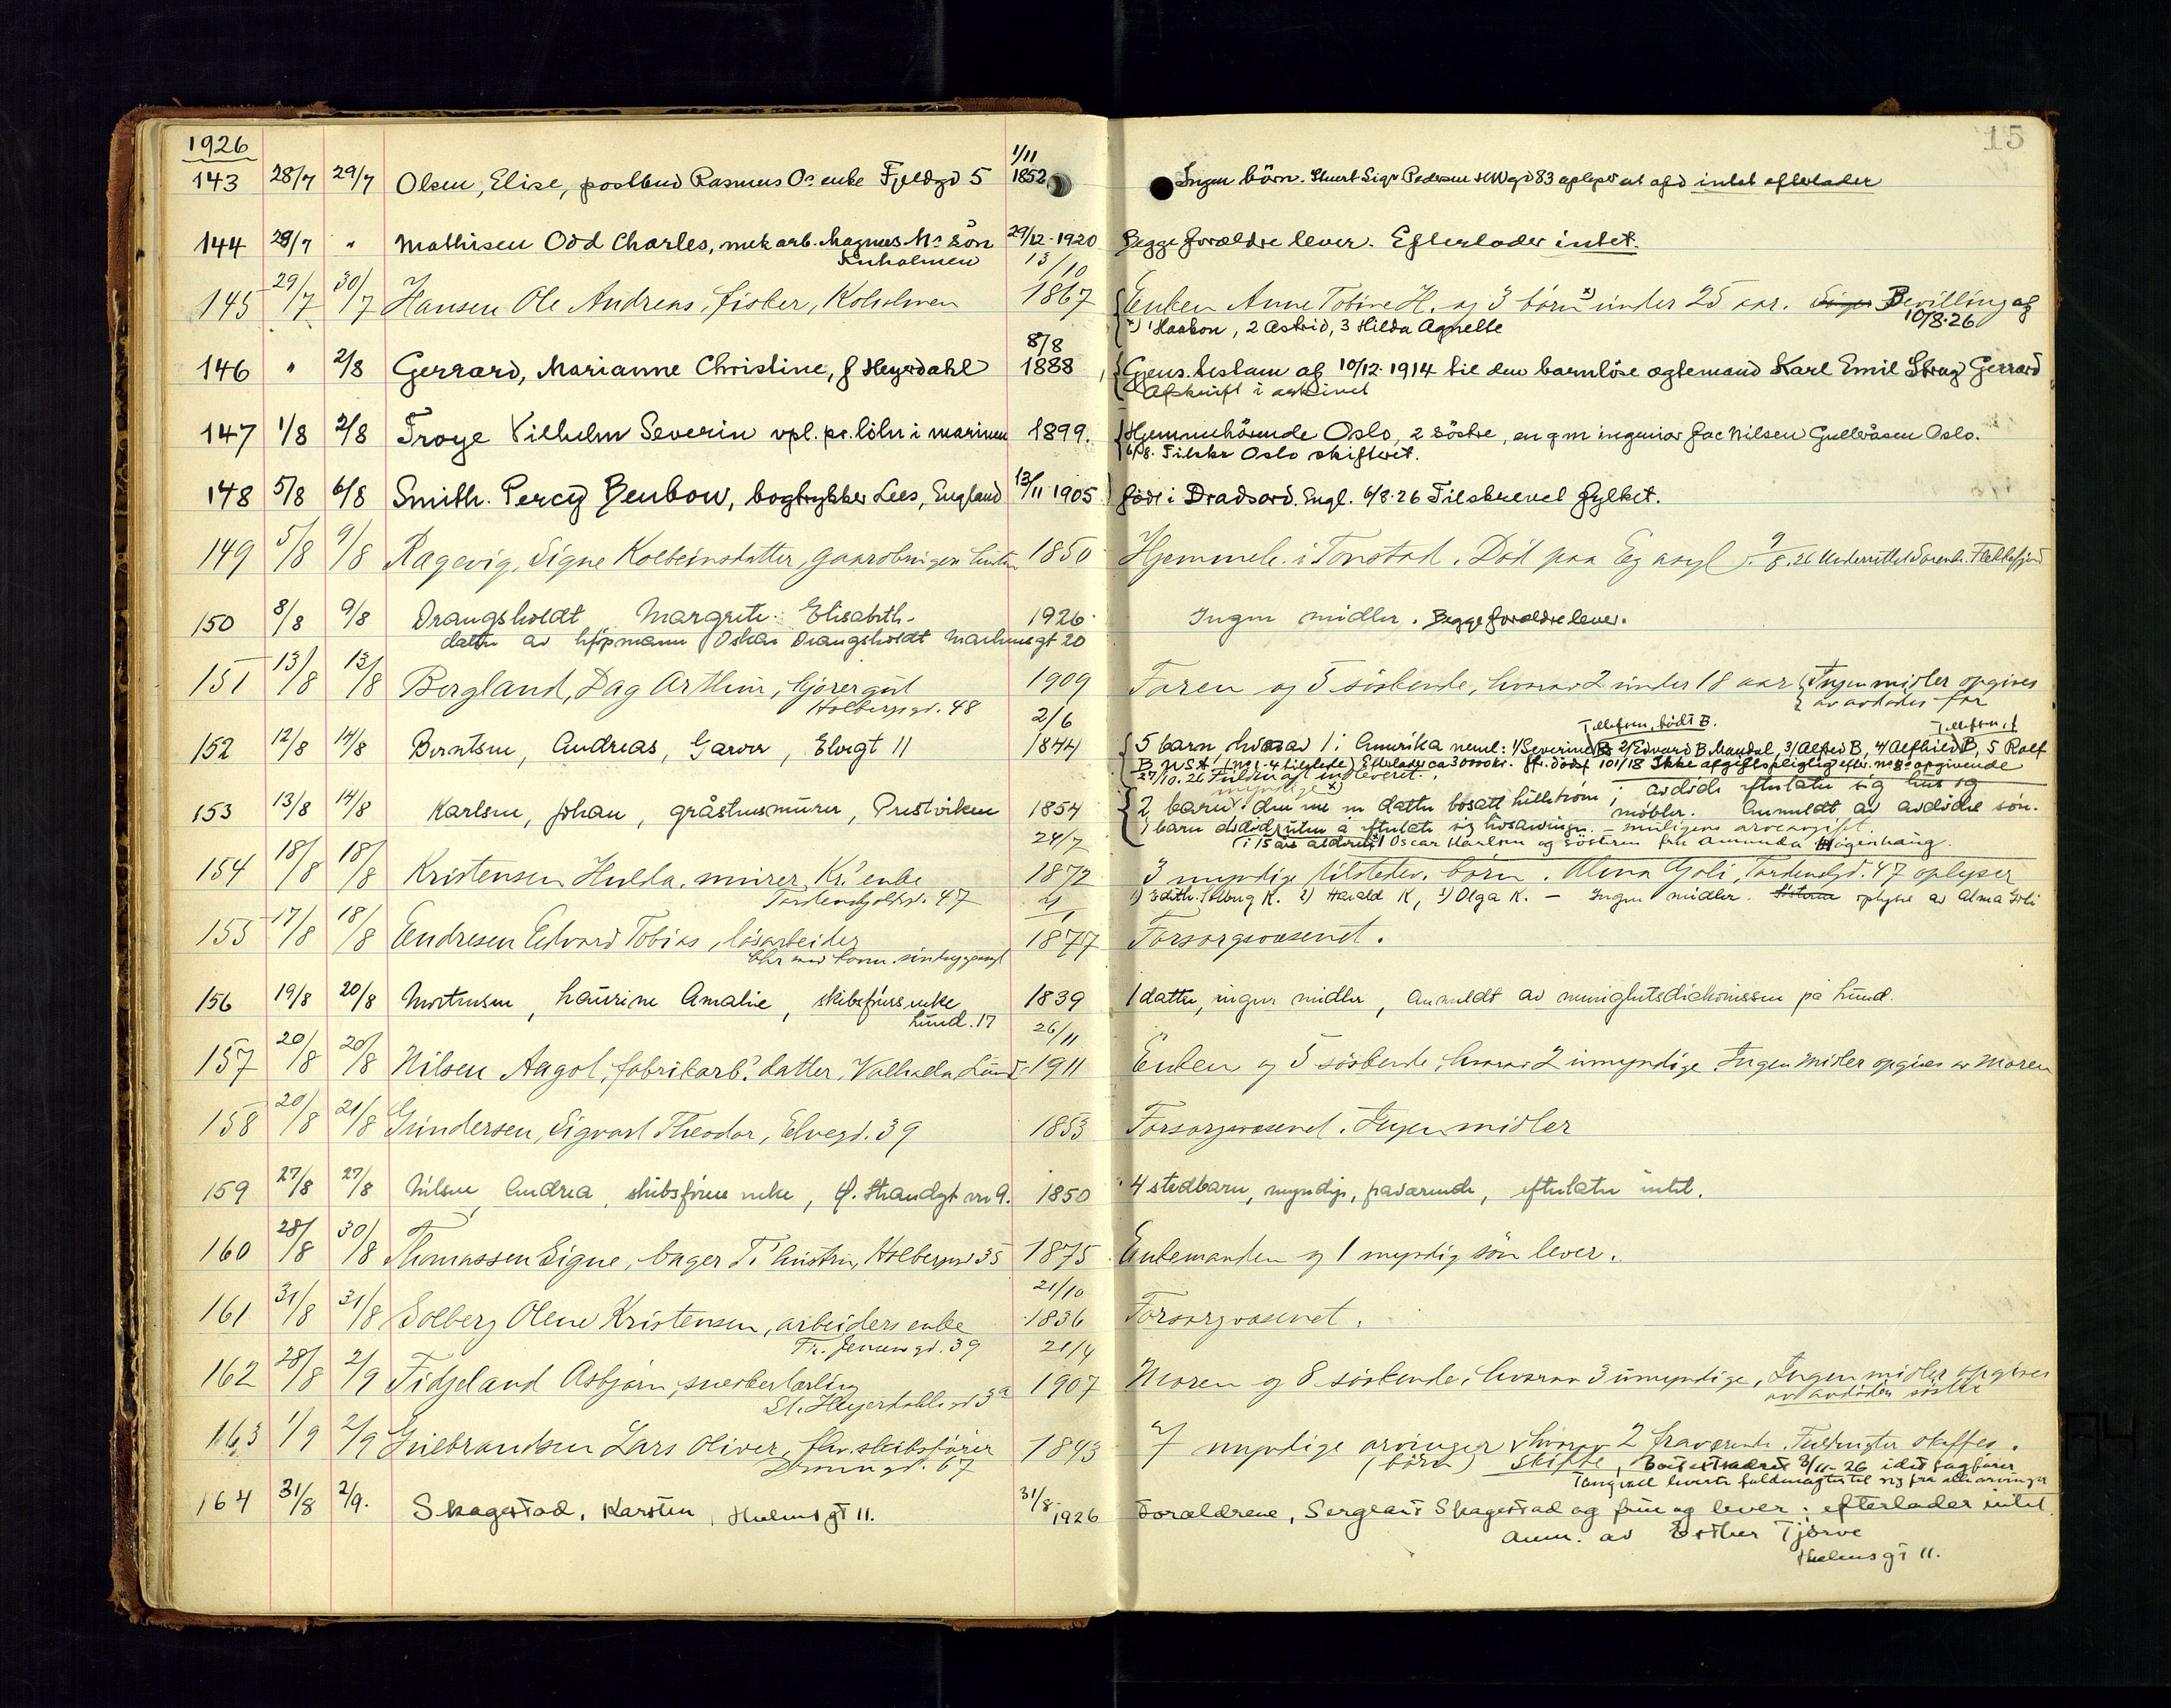 1926
15
143 28/7 29/7 Olsen, Elise, postbud Rasmus Os enke Fjeldgd 5 1/11 1852 Ingen börn. Sigv Pedersen HWgd 83 oplyser at afd intet efterlader
144 29/7 " Mathisen Odd Charles, mek arb. Magnus Ms sön 29/12-1920 Begge forældre lever. Efterlader intet.
13/10
145 29/7 30/7 Hansen Ole Andreas, fisker, Koholmen 1867 Enken Anne Tobine H. og 3 börn x) under 25 aar. Bevilling af 10/8.26
x) 1 Haakon, 2 Astrid, 3 Hilda Agnette
146 " 2/8 Gerrard, Marianne Christine, f Heyerdahl 8/8 1888 Gjens. testam af 10/12.1914 til den barnlöse ægtemand Karl Emil Gerrard
Afskrift i arkivet
147 1/8 2/8 Froye Vilhelm Severin vpl. pr. löitn i marinen 1899. Hjemmehörende Oslo, 2 söstre, en g m ingeniör Jac Nilsen Gulleråsen Oslo.
6/8. Tilskr Oslo skifteret.
148 5/8 6/8 Smith. Percy Benbow, bogtrykker Lees, England 13/11 1905 född i Engl. 6/8.26 Tilskrevet fylket.
149 5/8 9/8 Ragevig, Signe Kolbeinsdatter, 1850 Hjemmeh. i Tonstad. Död paa Eg asyl. 9/8.26 Underrettet Sorenskr. Flekkefjord
150 8/8 9/8 Drangsholdt Margrete Elisabeth- 1926 Ingen midler. Begge forældre lever.
datter av kjöpmann Oskar Drangsholdt Markensgt 20
151 13/8 13/8 Bergland, Dag Arthur, kjöregut 1909 Faren og 5 söskende, hvorav 2 under 18 aar Ingen midler opgives
Holbergsgd. 48 av avdödes far
Tellefsen, född B. Tellefsen, f
152 12/8 14/8 Berntsen, Andreas, Garver, Elvegt 11 2/6 1844 5 barn, hvorav 1 i Amerika neml: 1/ Severine B 2/ Edvard B Mandal, 3/ Alfred B, 4/ Alfhild B, 5 Ralf
B. USA. (no 1-4 tilstede) Efterlader ca 30000 kr. Ikke afgiftspligtig efter opgivende
27/10.26 indleveret.
153 13/8 14/8 Karlsen, Johan, gråstensmurer, Prestviken 1854 2 barn myndige x) den ene en datter bosatt Lillestrøm; avdöde efterlater sig hus og
møbler. Anmeldt av avdödes sön.
Oscar Karlsen og söstren fru Amanda
154 18/8 18/8 Kristensen Hulda, murer Kr.s enke 24/7 1872 3 myndige tilstedev. börn. Alma Goli, Tordenskgd. 47 oplyser
Tordenskjoldsgd. 47 1) Edith K. 2) Harald K, 3) Olga K. – Ingen midler. oplyst av Alma Goli
155 17/8 18/8 Endresen Edvard Tobias, løsarbeider 1877 Forsorgsvæsenet.
156 19/8 20/8 Mortensen, Laurine Amalie, skibsförers enke 1839 1 datter, ingen midler, anmeldt av menighetsdiakonissen på Lund.
Lund. 17
157 20/8 20/8 Nilsen Aagot, fabrikarb.s datter, Valhalla Lund 26/11 1911 Enken og 5 söskende, hvorav 2 umyndige. Ingen midler opgives av moren
158 20/8 21/8 Gundersen, Sigvart Theodor, Elvegd. 39 1853 Forsorgsvæsenet. Ingen midler
159 27/8 27/8 Nilsen, Andrea, skibsförer enke, Ø. Strandgt nr 9. 1850 4 stedbarn, myndige, fraværende, efterlater intet.
160 28/8 30/8 Thomassen Signe, bager T.s hustru, Holbergsgd 35 1875 Enkemanden og 1 myndig sön lever.
161 31/8 31/8 Solberg Olene Kristensen, arbeiders enke 21/10 1836 Forsorgsvæsenet.
Tr. Jensensgd. 39
162 28/8 2/9 Fidjeland Asbjörn, snekkerlærling 21/4 1907 Moren og 8 söskende, hvorav 3 umyndige, Ingen midler opgives
St. Heyerdahlsgd 3a av avdödes söster
163 1/9 2/9 Guldbrandsen Lars Oliver, fhv. skibsförer 1843 7 myndige arvinger hvorav 2 fraværende. Fuldmagter skaffes.
Dronnsgd. 67 (börn) Skifte, Boet extraderet 3/11-26 idet sagförer
Tangvall leverte fuldmagter til sig fra alle arvinger
164 31/8 2/9. Skagestad, Karsten, Holmsgt 11. 31/8 1926 Forældrene, Sergeant Skagestad og frue og lever; efterlader intet.
Anm. av Esther Tjörve
Holmsgt 11.